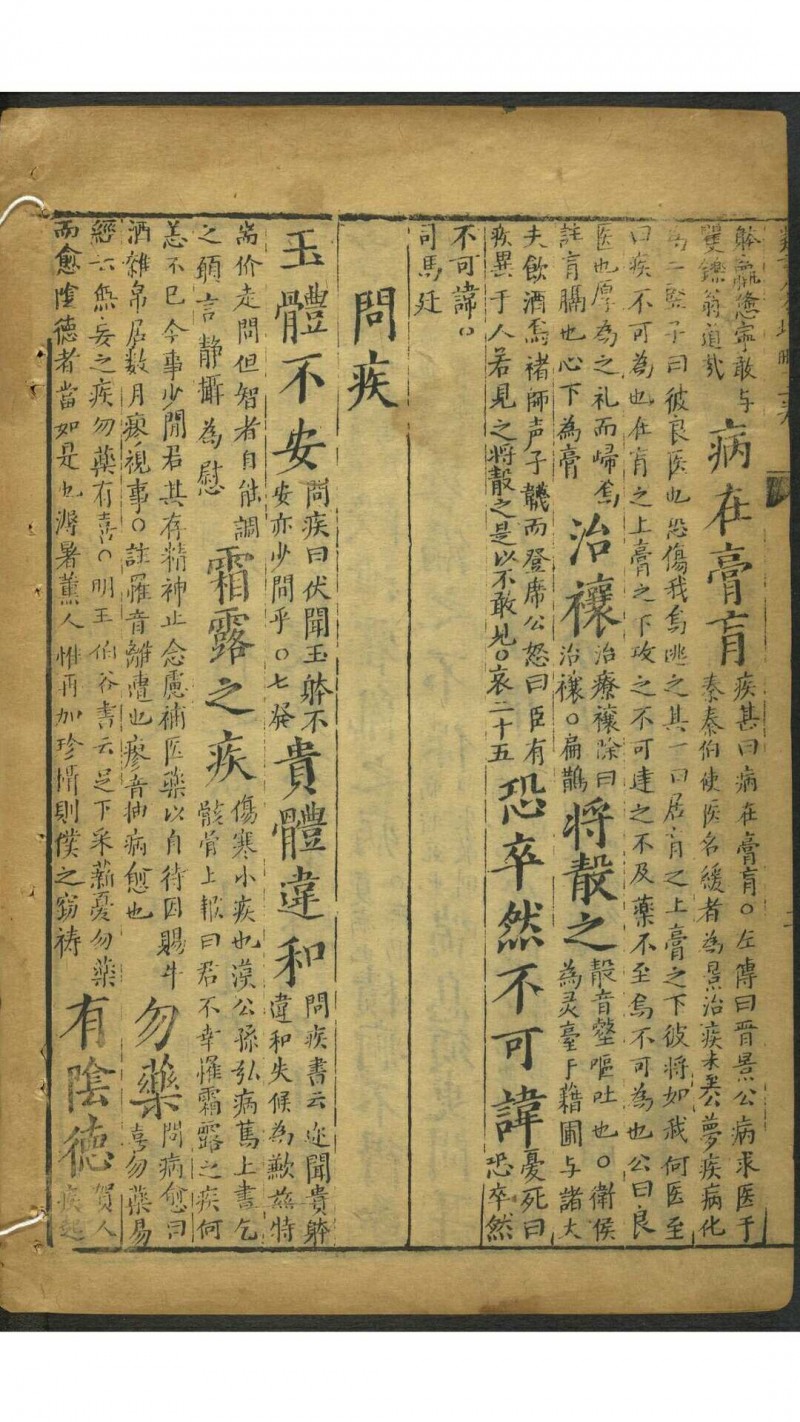 躰羸憊寧敢与
矍鑠翁道哉
病在膏肓
疾甚曰病在膏肓○左傳曰晋景公病求医于
秦秦伯使医名緩者為景治疾未至公夢疾病化
為二竪子曰彼良医也恐傷我焉逃之其一曰居肓之上膏之下彼将如我何医至
曰疾不可為也在肓之上膏之下攻之不可達之不及藥不至焉不可為也公曰良
医也厚為之礼而歸焉
註肓膈也心下為膏
治禳
治療禳除曰
治禳○扁鵲
将㱿之
㱿音壑嘔吐也○衛侯
為灵臺于藉圃与諸大
夫飲酒焉褚師声子韈而登席公怒曰臣有
疾異于人若見之将㱿之是以不敢也○哀二十五
恐卒然不可諱
憂死曰
恐卒然
不可諱○
司馬廷
問疾
玉體不安
問疾曰伏聞玉躰不
安亦少間乎○七發
貴體違和
問疾書云迩聞貴躰
違和失候為歉茲特
耑价走問但智者自能調
之頤言静攝為慰
霜露之疾
傷寒小疾也漢公孫弘病篤上書乞
骸骨上報曰君不幸罹霜露之疾何
恙不已今事少閒君其存精神止念慮補医藥以自待因賜牛
酒雜帛居数月瘳視事○註罹音離遭也瘳音抽病愈也
勿藥
問病愈曰
喜勿藥易
經云無妄之疾勿藥有喜○明王伯谷書云足下采薪憂勿藥
而愈陰德者當如是也溽暑薰人惟再加珍惜則僕之窃祷
有陰德
賀人
疾起